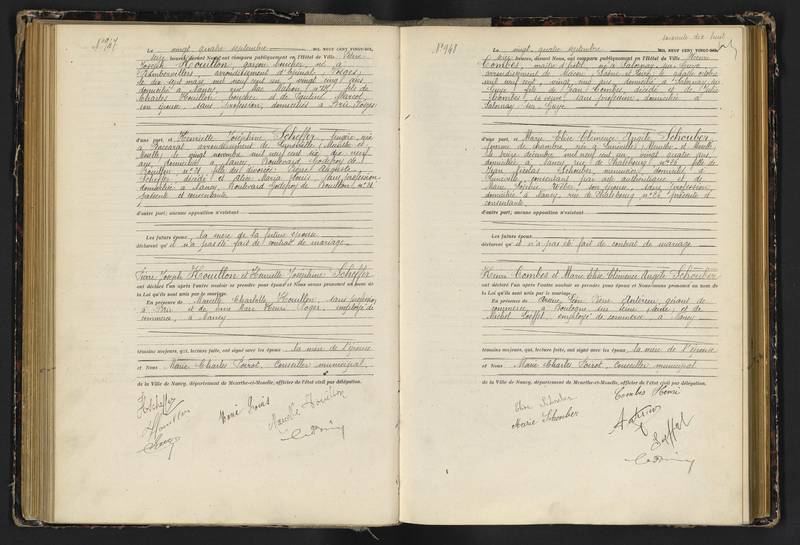 N° 947
Le vingt quatre septembre MIL NEUF CENT VINGT-SIX,
heures, devant Nous ont comparu publiquement en l'Hôtel de Ville Pierre
Joseph Houillon, garçon boucher, né à
Rambervillers, arrondissement d'Epinal, Vosges,
le dix sept mars mil neuf cent un, vingt cinq ans,
domicilié à Nancy, rue Mac Mahon, fils de
Charles Houillon, boucher et de Marcot,
son épouse, sans profession, domiciliés à Vosges
d'une part, et Henriette Joséphine Scheffer, née
à Baccarat arrondissement de Lunéville, Meurthe et
Moselle, le vingt novembre mil neuf cent six, dix neuf
ans, domiciliée à Nancy, Boulevard Godefroy de
Bouillon n° 21, fille des divorcés Pierre Auguste
Scheffer, décédé et Marie Louis, sans profession
domiciliée à Nancy, Boulevard Godefroy de Bouillon, n° 21
présente et consentante
d'autre part; aucune opposition n'existant
Les futurs époux, la mère de la future épouse
déclarent qu'il n'a pas été fait de contrat de mariage.
Pierre Joseph Houillon et Henriette Joséphine Scheffer
ont déclaré l'un après l'autre vouloir se prendre pour époux et Nous avons prononcé au nom
de la Loi qu'ils sont unis par le mariage.
En présence de Marcelle Charlotte Houillon, sans profession
à et de Marc Henri Roger, employé de
commerce, à Nancy
témoins majeurs, qui, lecture faite, ont signé avec les époux, la mère de l'épouse
et Nous Marie Charles Poirot, Conseiller municipal
de la Ville de Nancy, département de Meurthe-et-Moselle, officier de l'état civil par délégation.
HScheffer
Houillon
Marie Louis
Marcelle Houillon
soixante dix huit
N° 948
Le vingt quatre septembre MIL NEUF CENT VINGT-SIX,
heures, devant Nous ont comparu publiquement en l'Hôtel de Ville Henri
Combes, maître d'hôtel, né à Salornay sur Guye
arrondissement de Mâcon, Saône et Loire, le octobre
mil neuf cent, vingt cinq ans, domicilié à Salornay sur
Guye, fils de Jean Combes, décédé et de
Combes, sa veuve sans profession, domiciliée à
Salornay sur Guye
d'une part, et Marie Elise Clémence Angèle Schouber
femme de chambre, née à Lunéville, Meurthe et Moselle,
le décembre mil neuf cent un, vingt quatre ans,
domiciliée à Nancy, rue de Phalsbourg, fille de
Jean Nicolas Schouber, menuisier, domicilié à
Lunéville, consentant par acte authentique et de
Marie Sophie Weber son épouse, sans profession
domiciliée à Nancy, rue de Phalsbourg, présente et
consentante
d'autre part; aucune opposition n'existant
Les futurs époux
déclarent qu'il n'a pas été fait de contrat de mariage
Henri Combes et Marie Elise Clémence Angèle Schouber
ont déclaré l'un après l'autre vouloir se prendre pour époux et Nous avons prononcé au nom
de la Loi qu'ils sont unis par le mariage.
En présence de Léon Pierre gérant de
commerce, à Boulogne sur Seine, Seine, et de
Michel employé de commerce, à Nancy
témoins majeurs, qui, lecture faite, ont signé avec les époux, la mère de l'épouse
et Nous Marie Charles Poirot, Conseiller municipal
de la Ville de Nancy, département de Meurthe-et-Moselle, officier de l'état civil par délégation.
Combes Henri
Elise Schouber
Marie Schouber